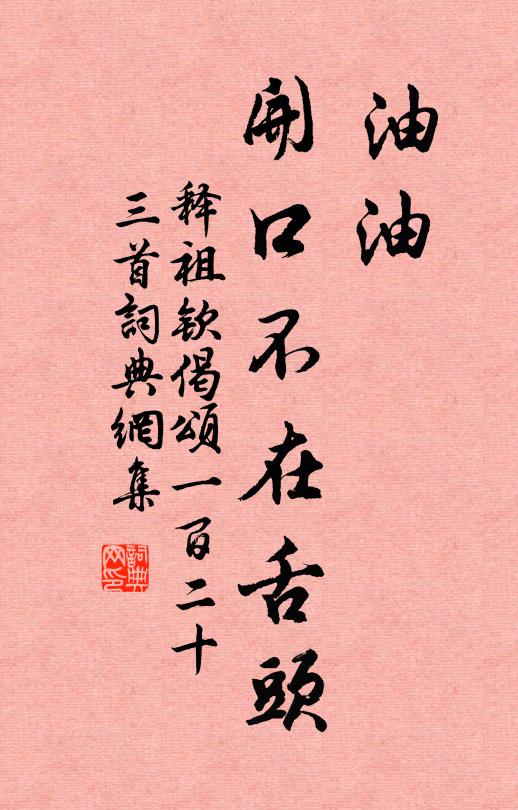 油油
開口不在舌頭
释祖欽偈頌一百二十
三首詞典網集
詞典
网印